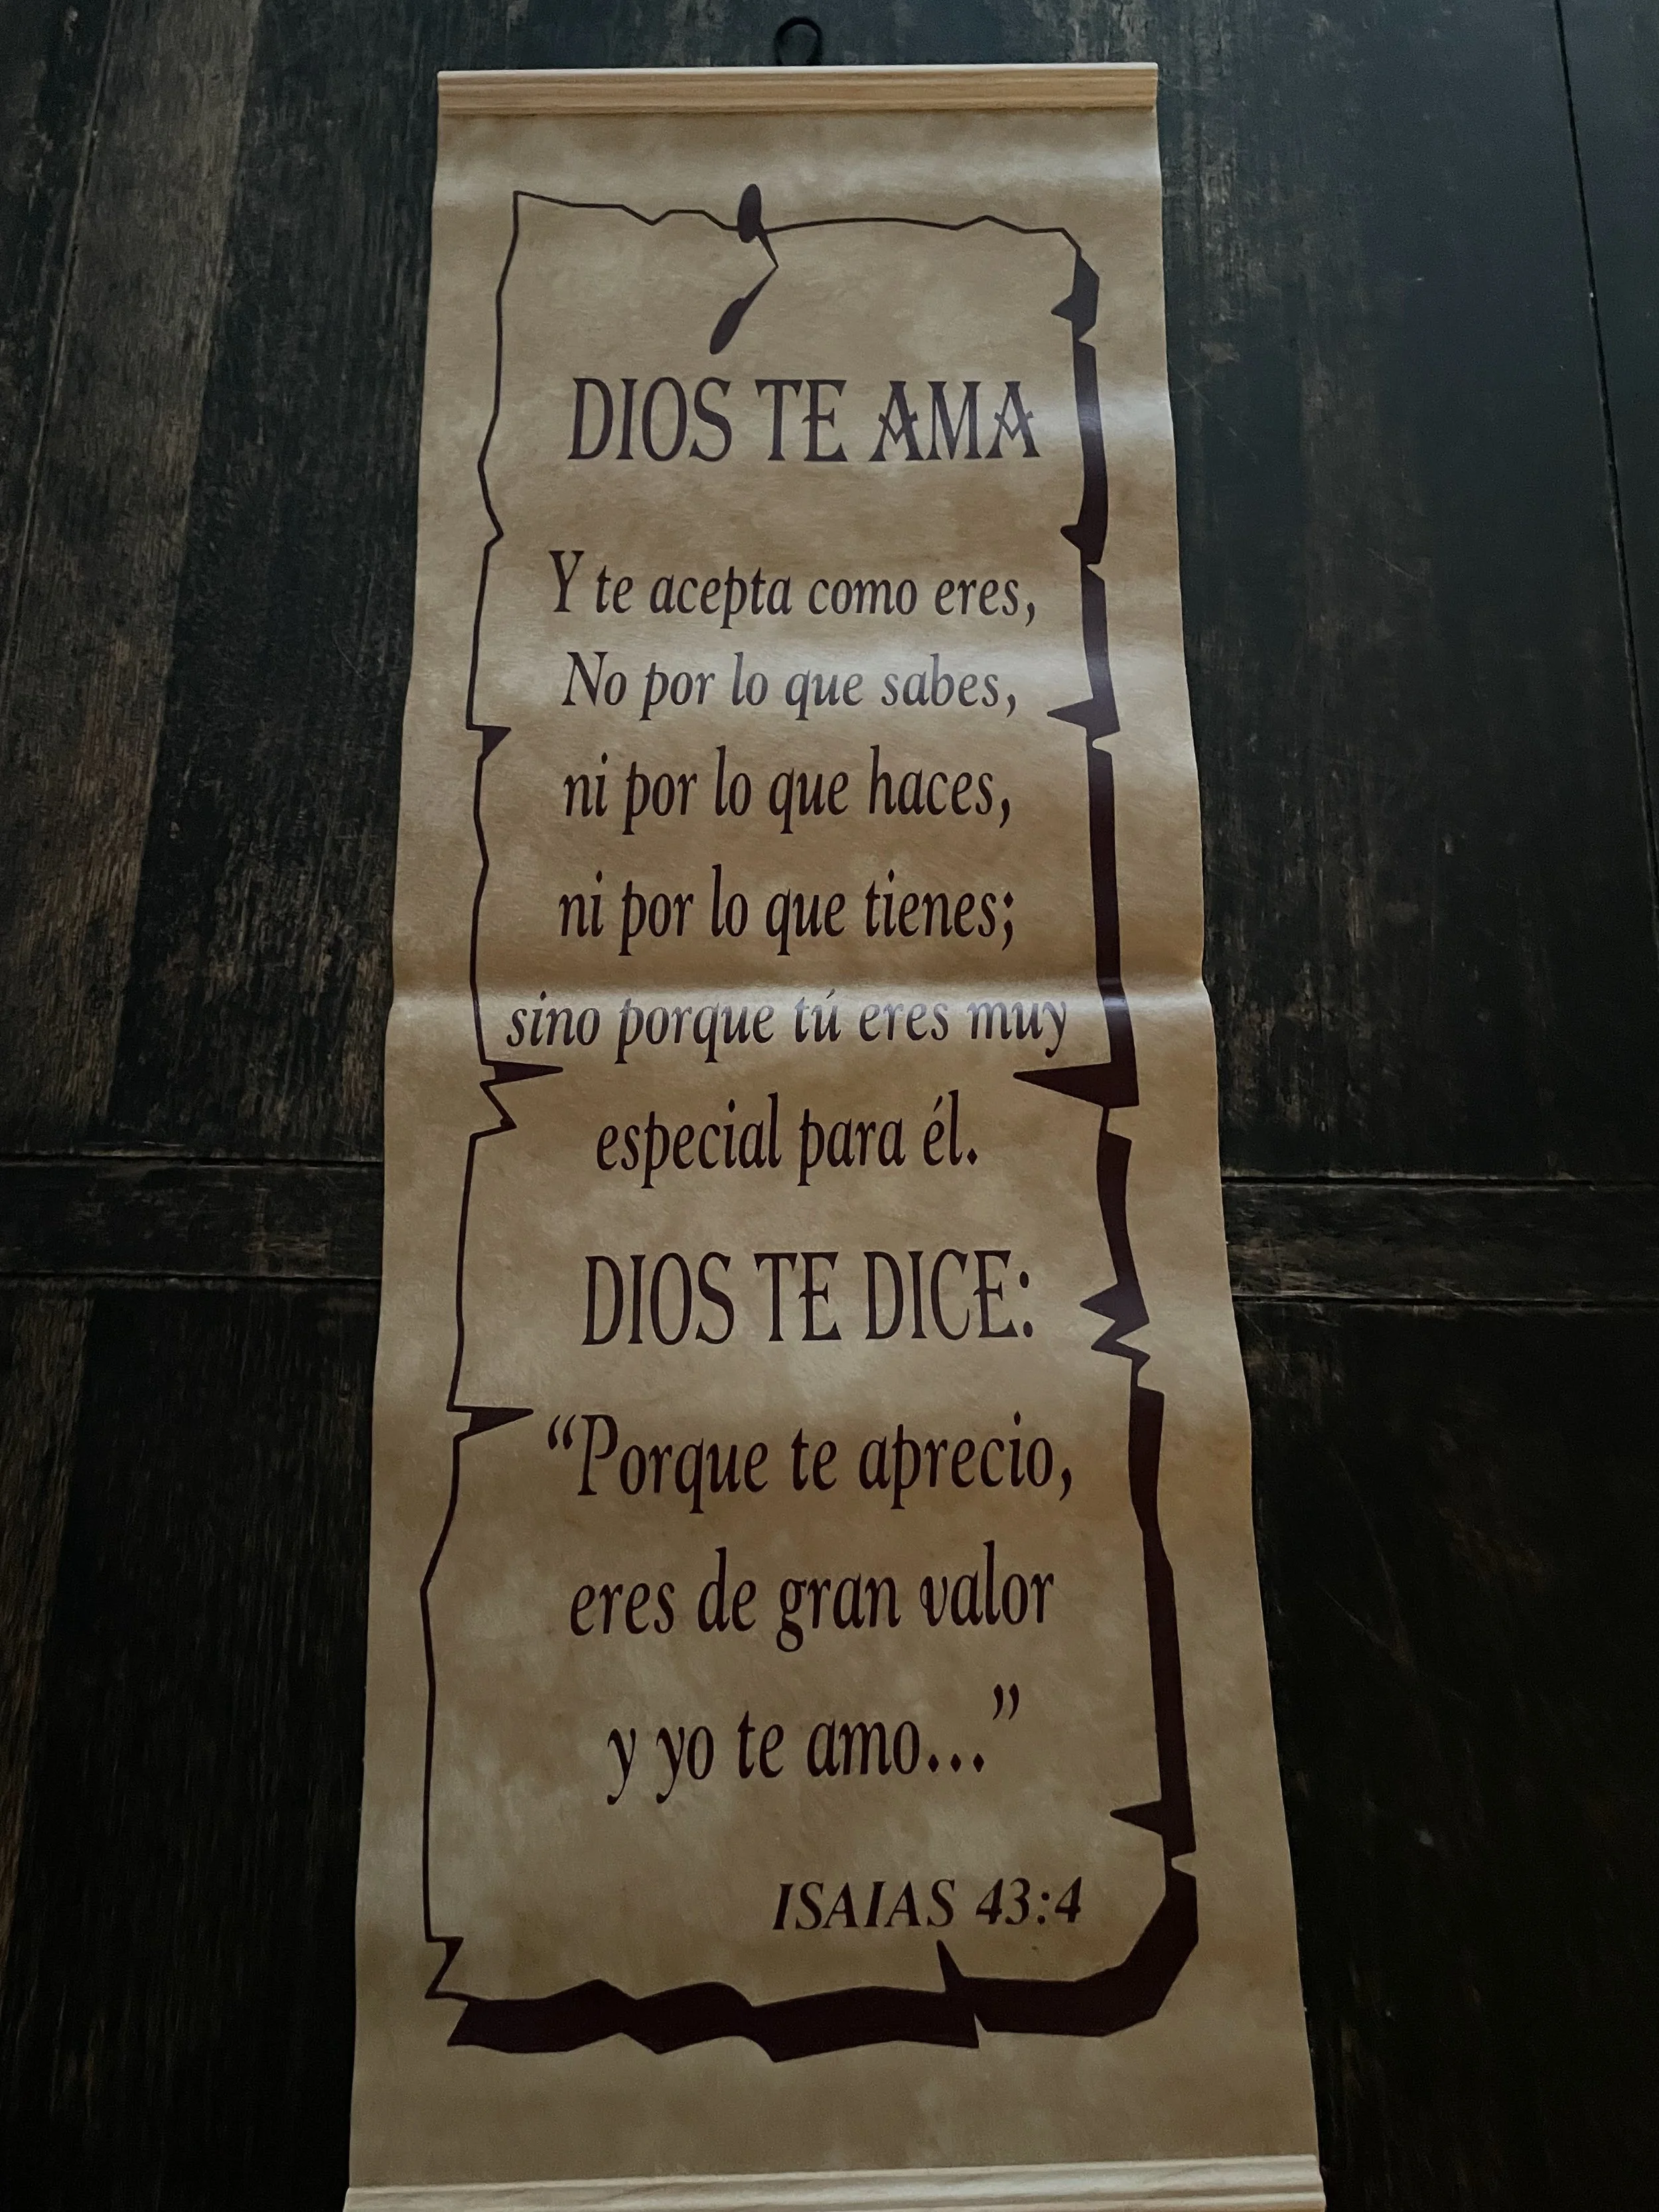 DIOS TE AMA
Y te acepta como eres,
No por lo que sabes,
ni por lo que haces,
ni por lo que tienes;
sino porque tú eres muy
especial para él.
DIOS TE DICE:
“Porque te aprecio,
eres de gran valor
y yo te amo...”
ISAIAS 43:4